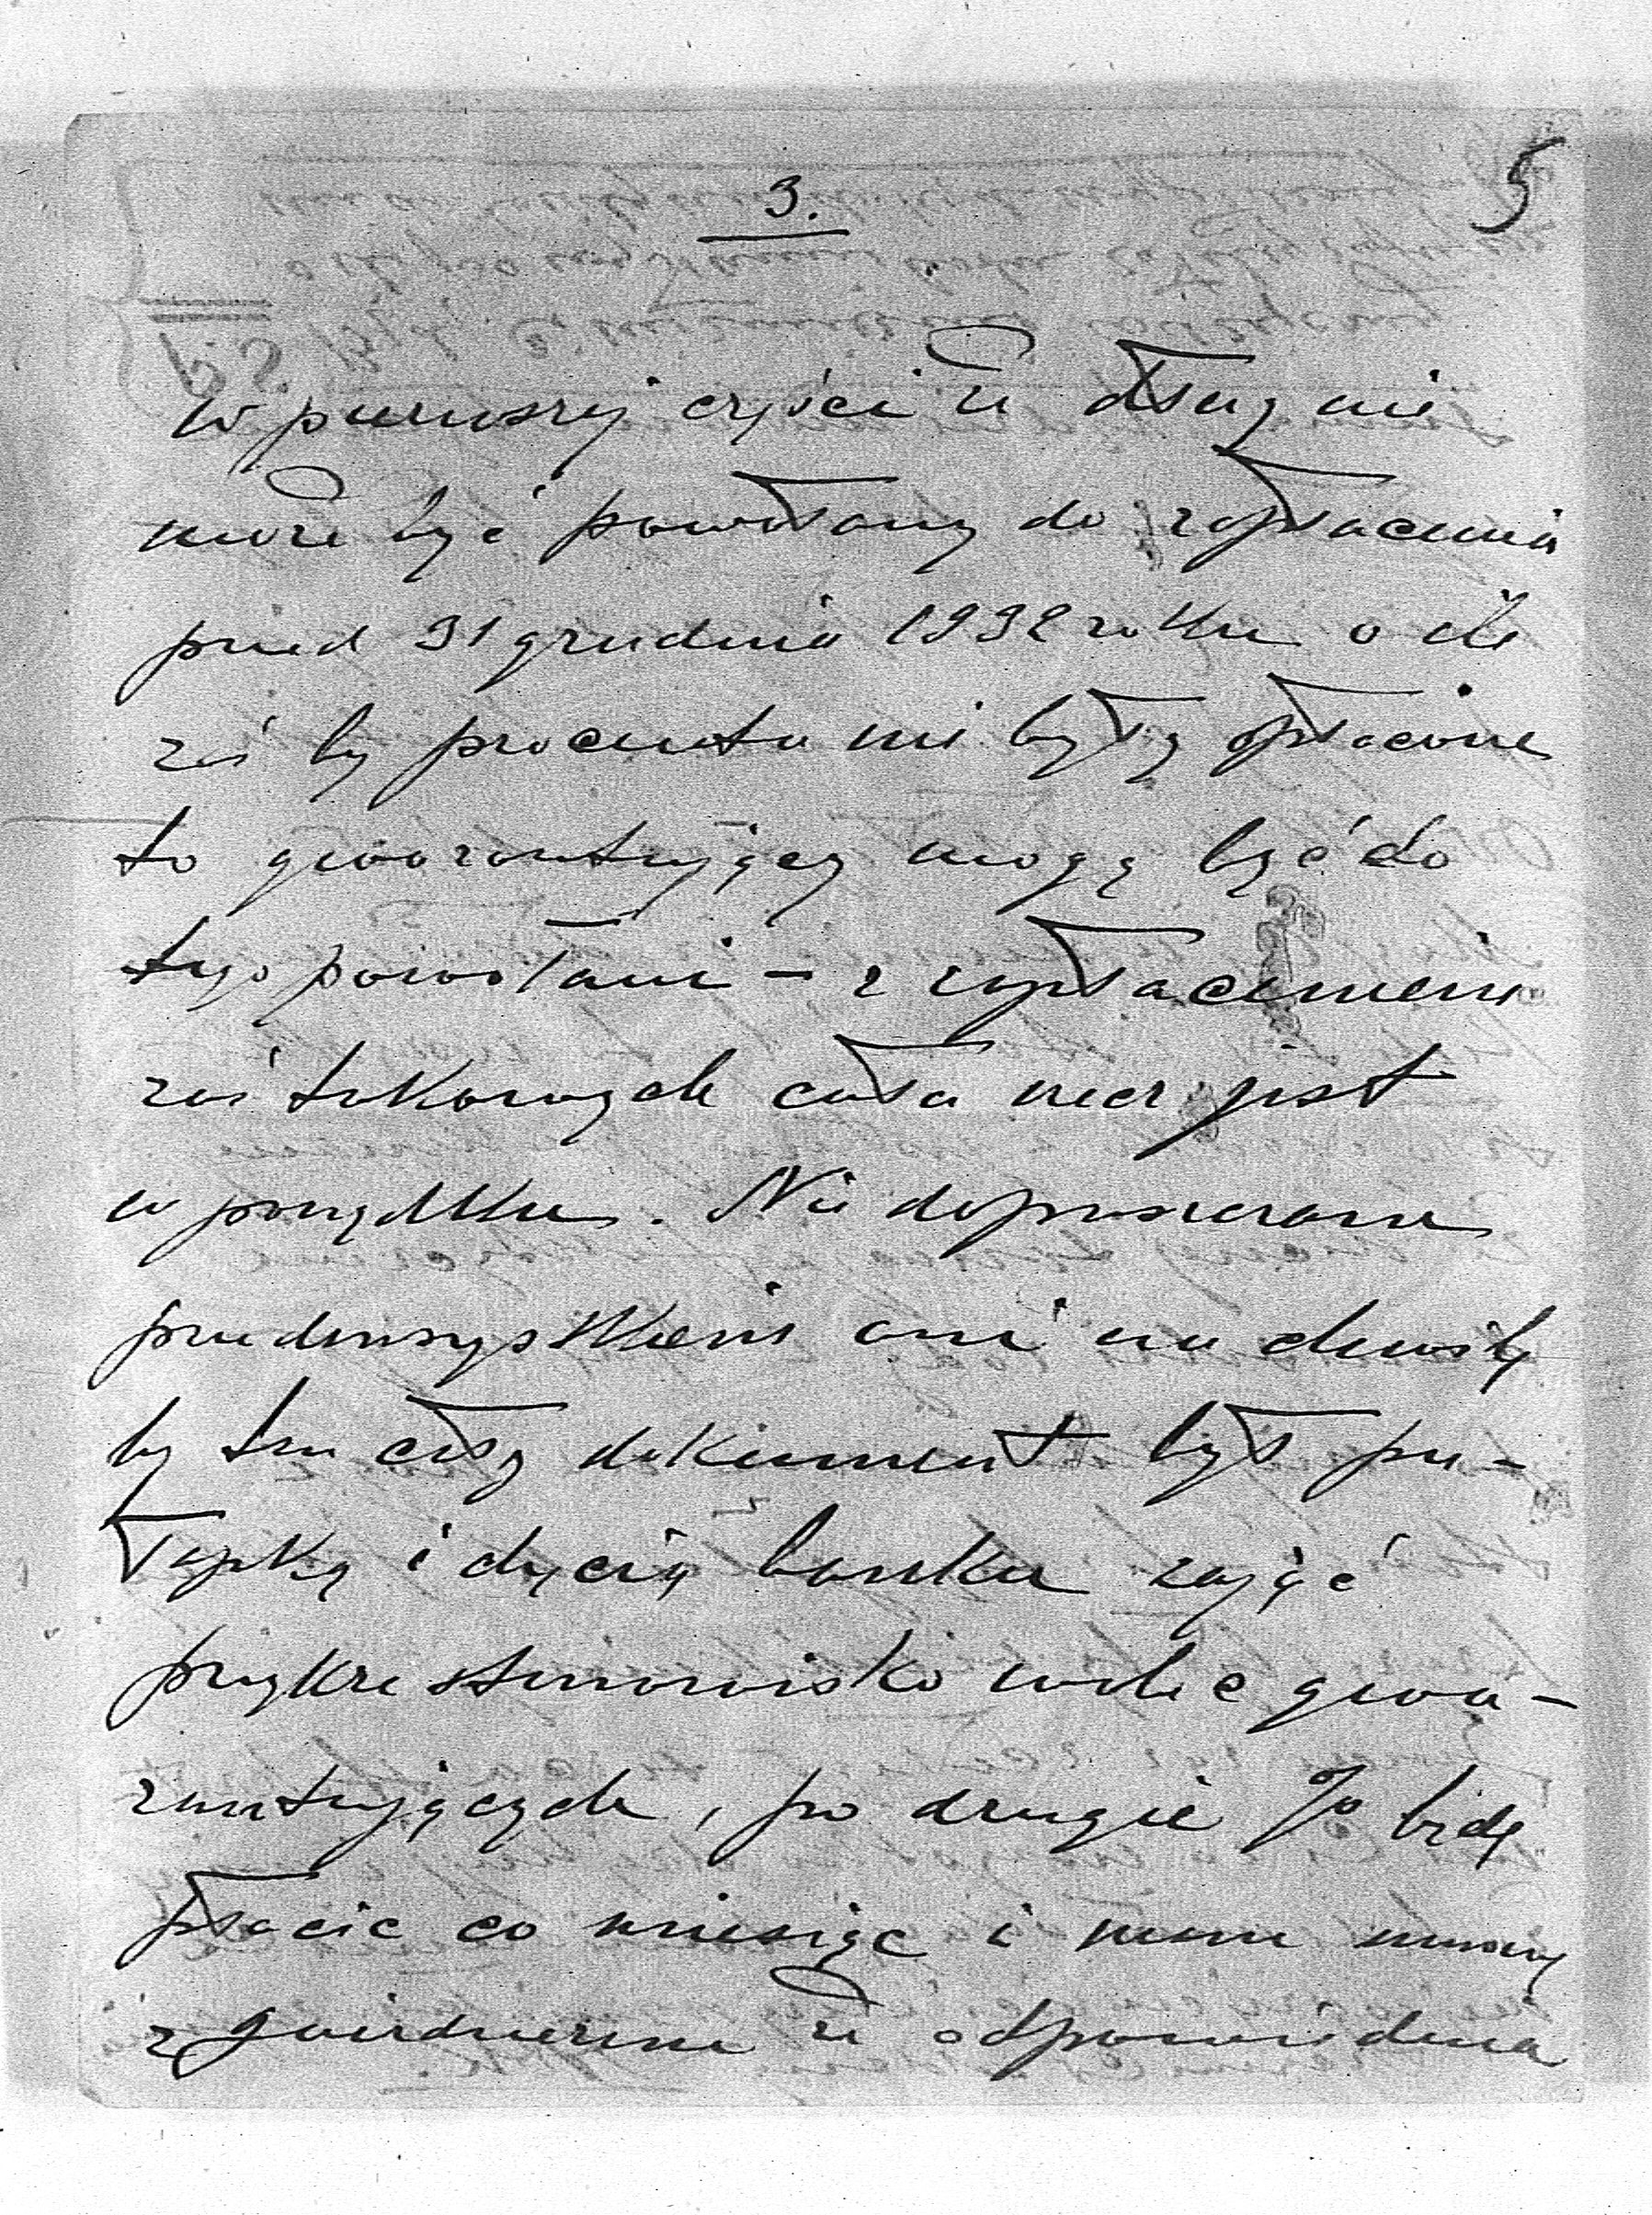 5
3.
w pierwszej części że dług nie
może być powołany do zapłacenia
przed 31 grudnia 1932 roku o ile
zaś by procenta nie były opłacone
to gwarantujący mogą być do
tego powołani – z zapłaceniem
zaś takowych cała rzecz jest
w porządku. Nie dopuszczam
przedewszystkiem ani na chwilę
by ten cały dokument był pu-
łapką i chęcią banku zająć
przykre stanowisko wobec gwa-
rantujących, po drugie Ja będę
płacić co miesiąc i mamy
z Gwidonem że odpowiednia